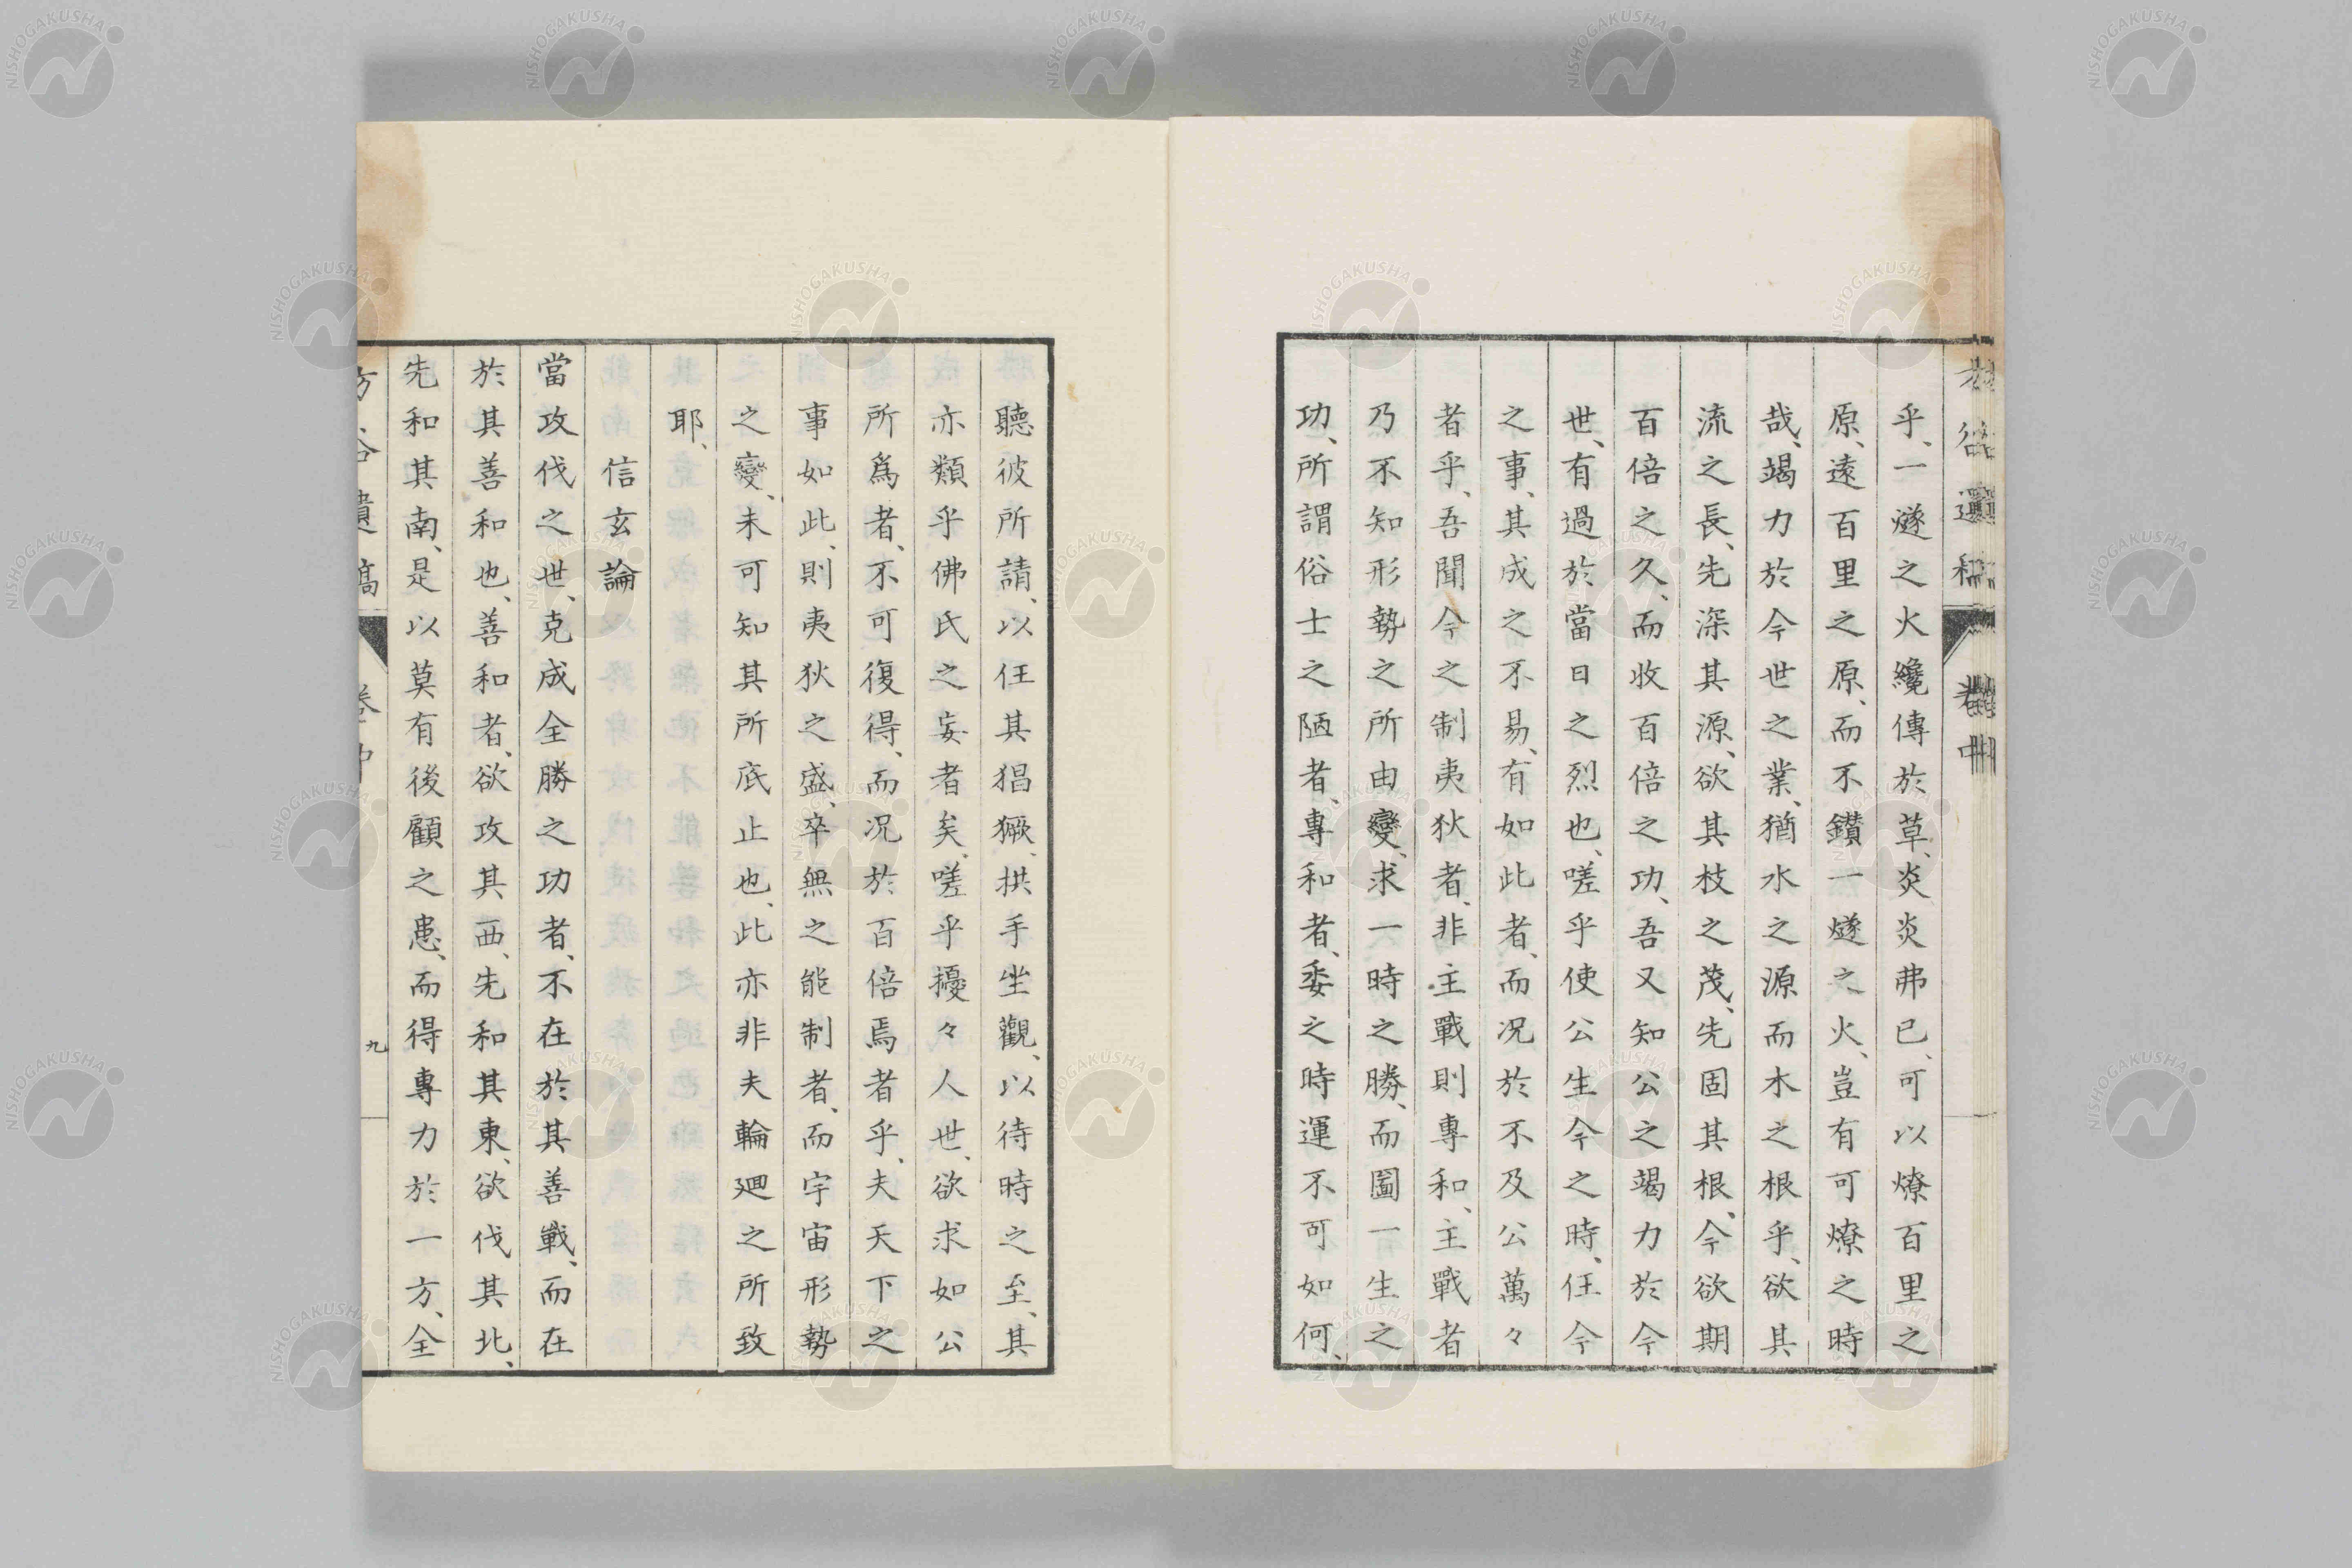 乎、一燧之火纔傳於草、炎炎弗已、可以燎百里之
原、遠百里之原、而不鑚一燧之火、豈有可燎之時
哉、竭力於今世之業、猶水之源而木之根乎、欲其
流之長、先深其源、欲其枝之茂、先固其根、今欲期
百倍之久、而收百倍之功、吾又知公之竭力於今
世、有過於當日之烈也、嗟乎使公生今之時、任今
之事、其成之不易、有如此者、而况於不及公萬々
者乎、吾聞今之制夷狄者、非主戰則專和、主戰者
乃不知形勢之所由變、求一時之勝、而圖一生之
功、所謂俗士之陋者、專和者、委之時運不可如何、
聽彼所請、以任其猖獗、拱手坐觀、以待時之至、其
亦類乎佛氏之妄者矣、嗟乎擾々人世、欲求如公
所爲者、不可復得、而况於百倍焉者乎、夫天下之
事如此、則夷狄之盛、卒無之能制者、而宇宙形勢
之變、未可知其所底止也、此亦非夫輪廻之所致
耶、
信玄論
當攻伐之世、克成全勝之功者、不在於其善戰、而在
於其善和也、善和者、欲攻其西、先和其東、欲伐其北、
先和其南、是以莫有後顧之患、而得專力於一方、全
方谷遺稿 卷中 九
NISHOGAKUSHA